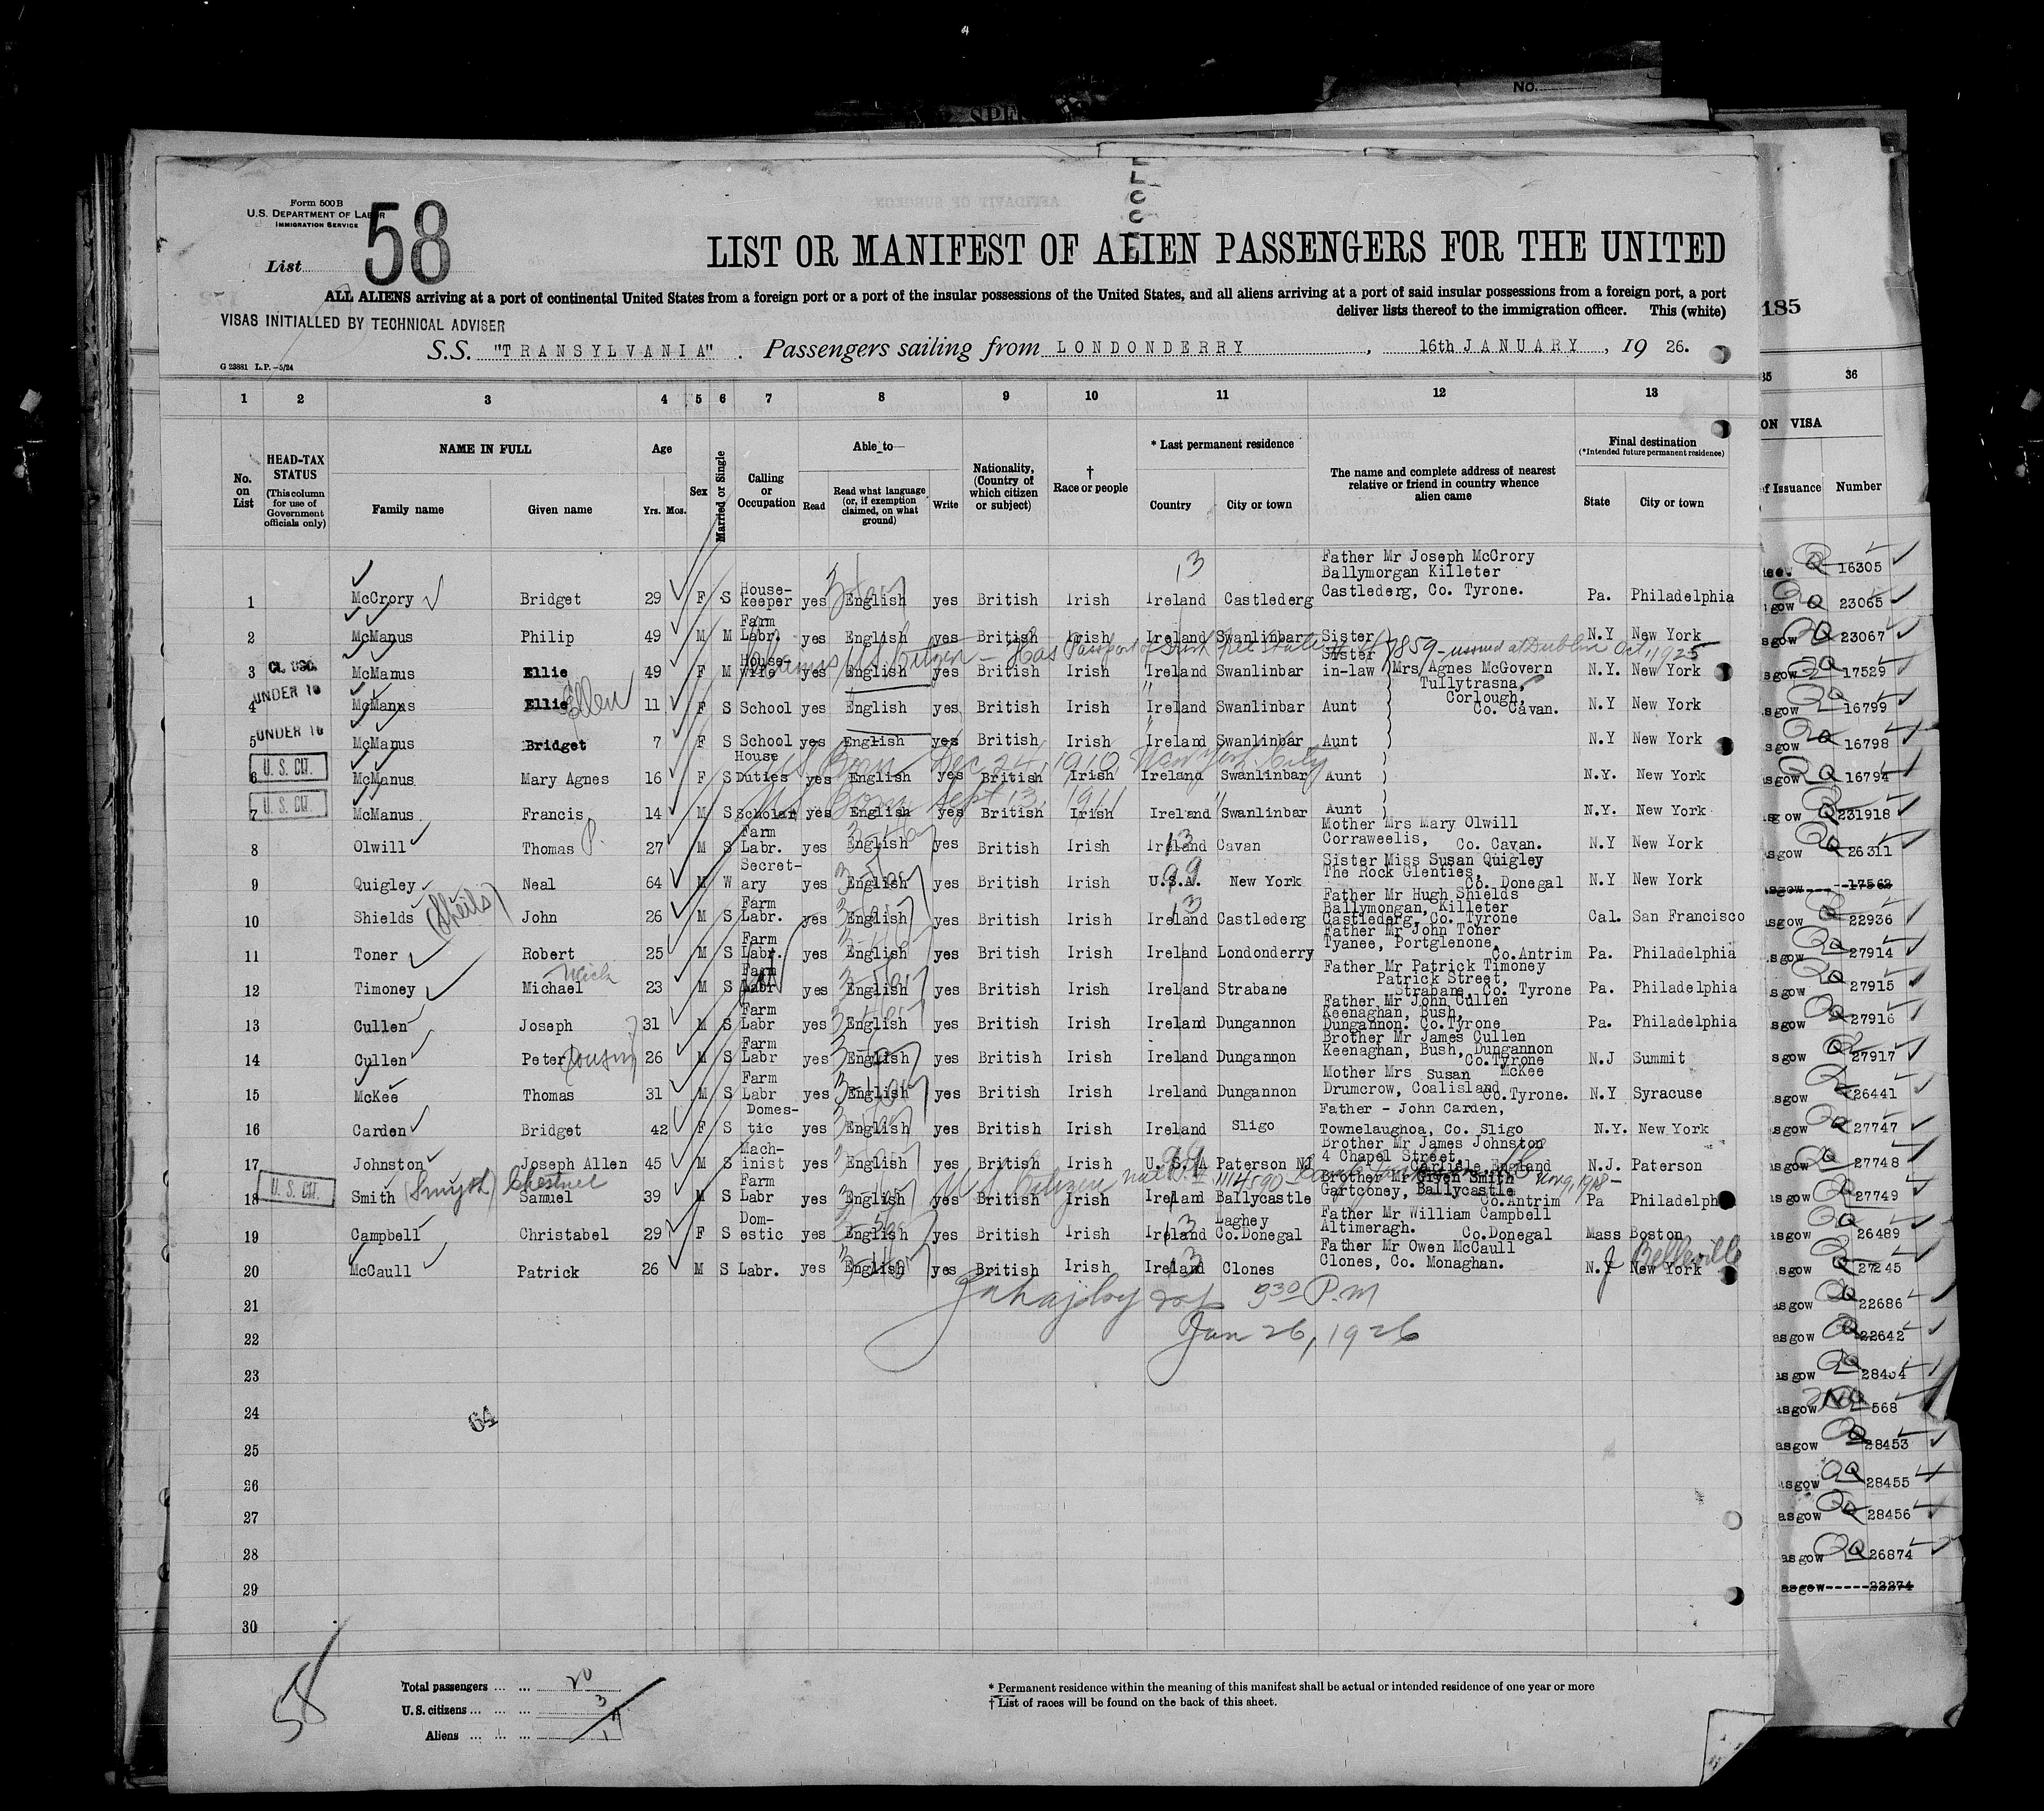 No.
Form 500 B
U.S. DEPARTMENT OF LABOR
IMMIGRATION SERVICE
List 58
LIST OR MANIFEST OF ALIEN PASSENGERS FOR THE UNITED
ALL ALIENS arriving at a port of continental United States from a foreign port or a port of the insular possessions of the United States, and all aliens arriving at a port of said insular possessions from a foreign port, a port
deliver lists thereof to the immigration officer. This (white)
VISAS INITIALLED BY TECHNICAL ADVISER
S.S. "TRANSYLVANIA". Passengers sailing from LONDONDERRY, 16th JANUARY, 19 26.
G 23881 L.P.—5/24
185
1 2 3 4 5 6 7 8 9 10 11 12 13
35 36
No. on List
HEAD-TAX STATUS
(This column for use of Government officials only)
NAME IN FULL
Family name
Given name
Age
Yrs. Mos.
Sex
Married or Single
Calling or Occupation
Able to—
Read
Read what language (or, if exemption claimed, on what ground)
Write
Nationality, (Country of which citizen or subject)
†
Race or people
* Last permanent residence
Country
City or town
The name and complete address of nearest relative or friend in country whence alien came
Final destination
(*Intended future permanent residence)
State
City or town
ON VISA
of Issuance Number
1 McCrory Bridget 29 F S House-keeper yes English yes British Irish Ireland Castlederg Father Mr Joseph McCrory Ballymorgan Killeter Castlederg, Co. Tyrone. Pa. Philadelphia
2 McManus Philip 49 M M Farm Labr. yes English yes British Irish Ireland Swanlinbar Sister N.Y New York
U.S. Citizen - Has Passport of Irish Free State 7859 - issued at Dublin Oct. 1925
3 McManus Ellie 49 F M House-wife yes English yes British Irish Ireland Swanlinbar Sister in-law Mrs Agnes McGovern N.Y. New York
UNDER 16
4 McManus Ellie Ellen 11 F S School yes English yes British Irish Ireland Swanlinbar Aunt Tullytrasna, Corlough, Co. Cavan. N.Y New York
UNDER 16
5 McManus Bridget 7 F S School yes English yes British Irish Ireland Swanlinbar Aunt N.Y New York
U.S. CIT.
US Born Dec 24, 1910 New York City
6 McManus Mary Agnes 16 F S House Duties yes English yes British Irish Ireland Swanlinbar Aunt N.Y. New York
U.S. CIT.
US Born Sept 13, 1911
7 McManus Francis 14 M S Scholar yes English yes British Irish Ireland Swanlinbar Aunt N.Y. New York
8 Olwill Thomas P. 27 M S Farm Labr. yes English yes British Irish Ireland Cavan Mother Mrs Mary Olwill Corraweelis, Co. Cavan. N.Y New York
9 Quigley Neal 64 M W Secret-ary yes English yes British Irish U.S.A. New York Sister Miss Susan Quigley The Rock Glenties, Co. Donegal N.Y New York
10 Shields (Sheils) John 26 M S Farm Labr. yes English yes British Irish Ireland Castlederg Father Mr Hugh Shields Ballymongan, Killeter Castlederg, Co. Tyrone Cal. San Francisco
11 Toner Robert 25 M S Farm Labr. yes English yes British Irish Ireland Londonderry Father Mr John Toner Tyanee, Portglenone, Co.Antrim Pa. Philadelphia
12 Timoney Michael 23 M S Farm Labr yes English yes British Irish Ireland Strabane Father Mr Patrick Timoney Patrick Street, Strabane, Co. Tyrone Pa. Philadelphia
13 Cullen Joseph 31 M S Farm Labr yes English yes British Irish Ireland Dungannon Father Mr John Cullen Keenaghan, Bush, Dungannon. Co.Tyrone Pa. Philadelphia
14 Cullen Peter cousin 26 M S Farm Labr yes English yes British Irish Ireland Dungannon Brother Mr James Cullen Keenaghan, Bush, Dungannon Co.Tyrone N.J Summit
15 McKee Thomas 31 M S Farm Labr yes English yes British Irish Ireland Dungannon Mother Mrs Susan McKee Drumcrow, Coalisland Co.Tyrone. N.Y Syracuse
16 Carden Bridget 42 F S Domes-tic yes English yes British Irish Ireland Sligo Father - John Carden, Townelaughoa, Co. Sligo N.Y. New York
17 Johnston Joseph Allen 45 M S Mach-inist yes English yes British Irish U.S.A Paterson NJ Brother Mr James Johnston 4 Chapel Street, Carlisle, England N.J. Paterson
U.S. CIT.
US Citizen Nov 9, 1918
18 Smith (Smyth) Chestnut Samuel 39 M S Farm Labr yes English yes British Irish Ireland Ballycastle Brother Mr Given Smith Gartconey, Ballycastle Co.Antrim Pa Philadelph
19 Campbell Christabel 29 F S Dom-estic yes English yes British Irish Ireland Laghey Co.Donegal Father Mr William Campbell Altimeragh. Co.Donegal Mass Boston
20 McCaull Patrick 26 M S Labr. yes English yes British Irish Ireland Clones Father Mr Owen McCaull Clones, Co. Monaghan. N.Y New York J Belleville
9 30 P.M
Jan 26, 1926
21
22
23
24
64
25
26
27
28
29
30
16305
gow 23065
sgow 23067
sgow 17529
sgow 16799
sgow 16798
sgow 16794
sgow 231918
asgow 26311
asgow 17562
asgow 22936
sgow 27914
sgow 27915
sgow 27916
sgow 27917
sgow 26441
sgow 27747
sgow 27748
sgow 27749
asgow 26489
asgow 27245
asgow 22686
asgow 22642
asgow 28454
asgow 568
asgow 28453
asgow 28455
asgow 28456
asgow 26874
asgow 22274
58
Total passengers 20
U.S. citizens 3
Aliens 17
* Permanent residence within the meaning of this manifest shall be actual or intended residence of one year or more
† List of races will be found on the back of this sheet.